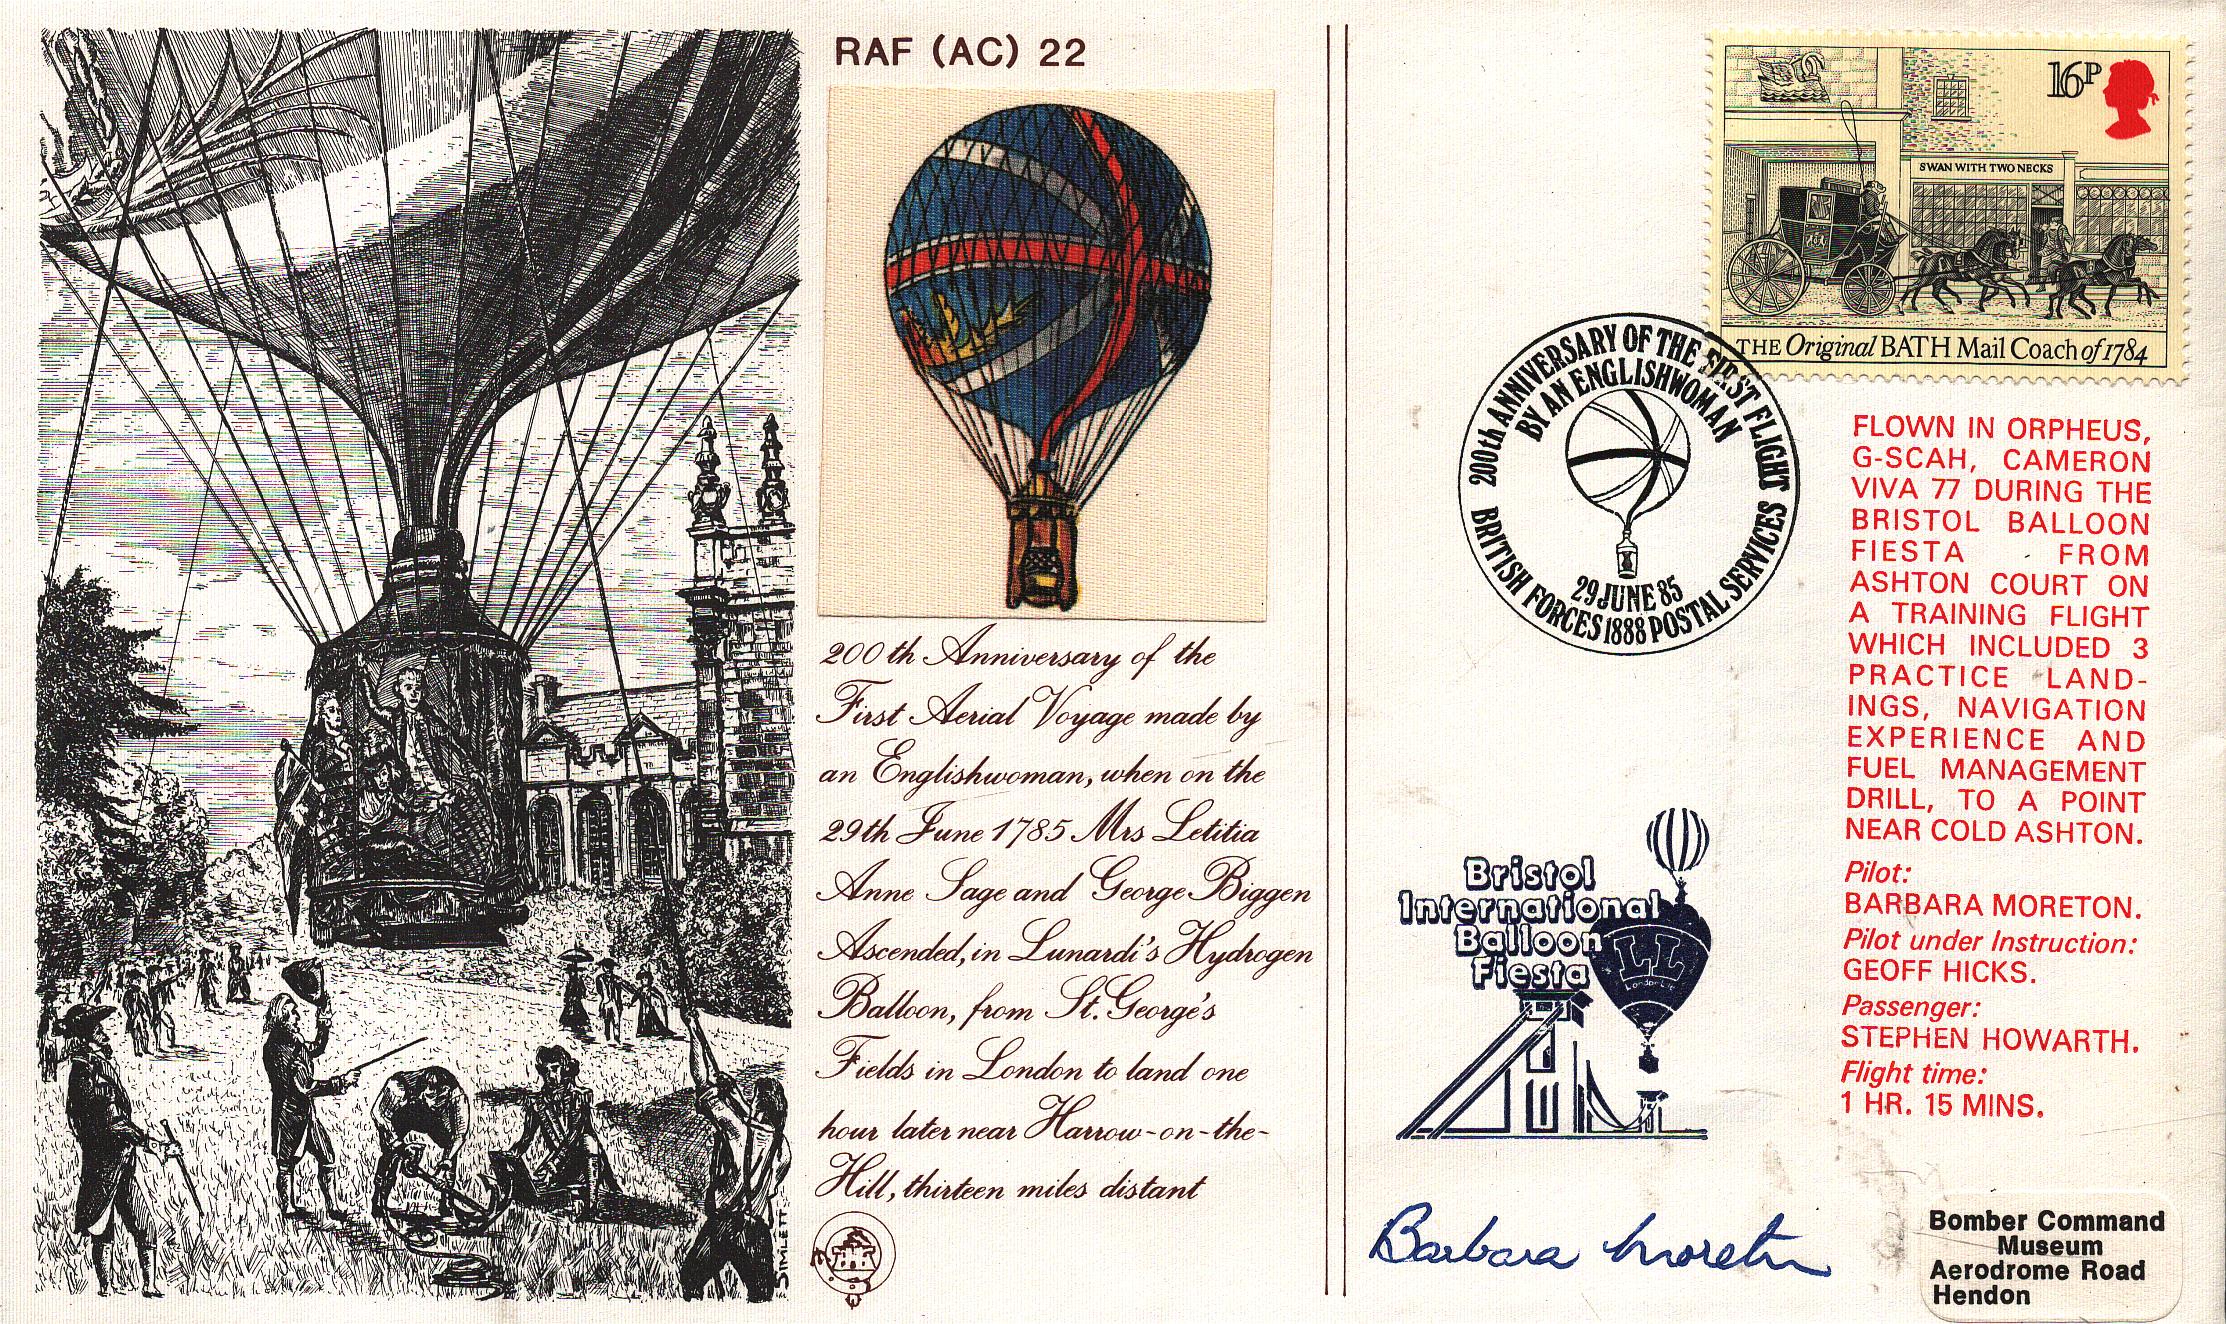 RAF (AC) 22
200th Anniversary of the
First Aerial Voyage made by
an Englishwoman, when on the
29th June 1785 Mrs Letitia
Anne Sage and George Biggen
Ascended, in Lunardi's Hydrogen
Balloon, from St. George's
Fields in London to land one
hour later near Harrow-on-the-
Hill, thirteen miles distant
SIMLETT.
16P
SWAN WITH TWO NECKS
THE Original BATH Mail Coach of 1784
200th ANNIVERSARY OF THE FIRST FLIGHT
BY AN ENGLISHWOMAN
29 JUNE 85
BRITISH FORCES 1888 POSTAL SERVICES
FLOWN IN ORPHEUS,
G-SCAH, CAMERON
VIVA 77 DURING THE
BRISTOL BALLOON
FIESTA FROM
ASHTON COURT ON
A TRAINING FLIGHT
WHICH INCLUDED 3
PRACTICE LAND-
INGS, NAVIGATION
EXPERIENCE AND
FUEL MANAGEMENT
DRILL, TO A POINT
NEAR COLD ASHTON.
Pilot:
BARBARA MORETON.
Pilot under Instruction:
GEOFF HICKS.
Passenger:
STEPHEN HOWARTH.
Flight time:
1 HR. 15 MINS.
Bristol
International
Balloon
Fiesta
LL
London Life
Barbara Moreton
Bomber Command
Museum
Aerodrome Road
Hendon